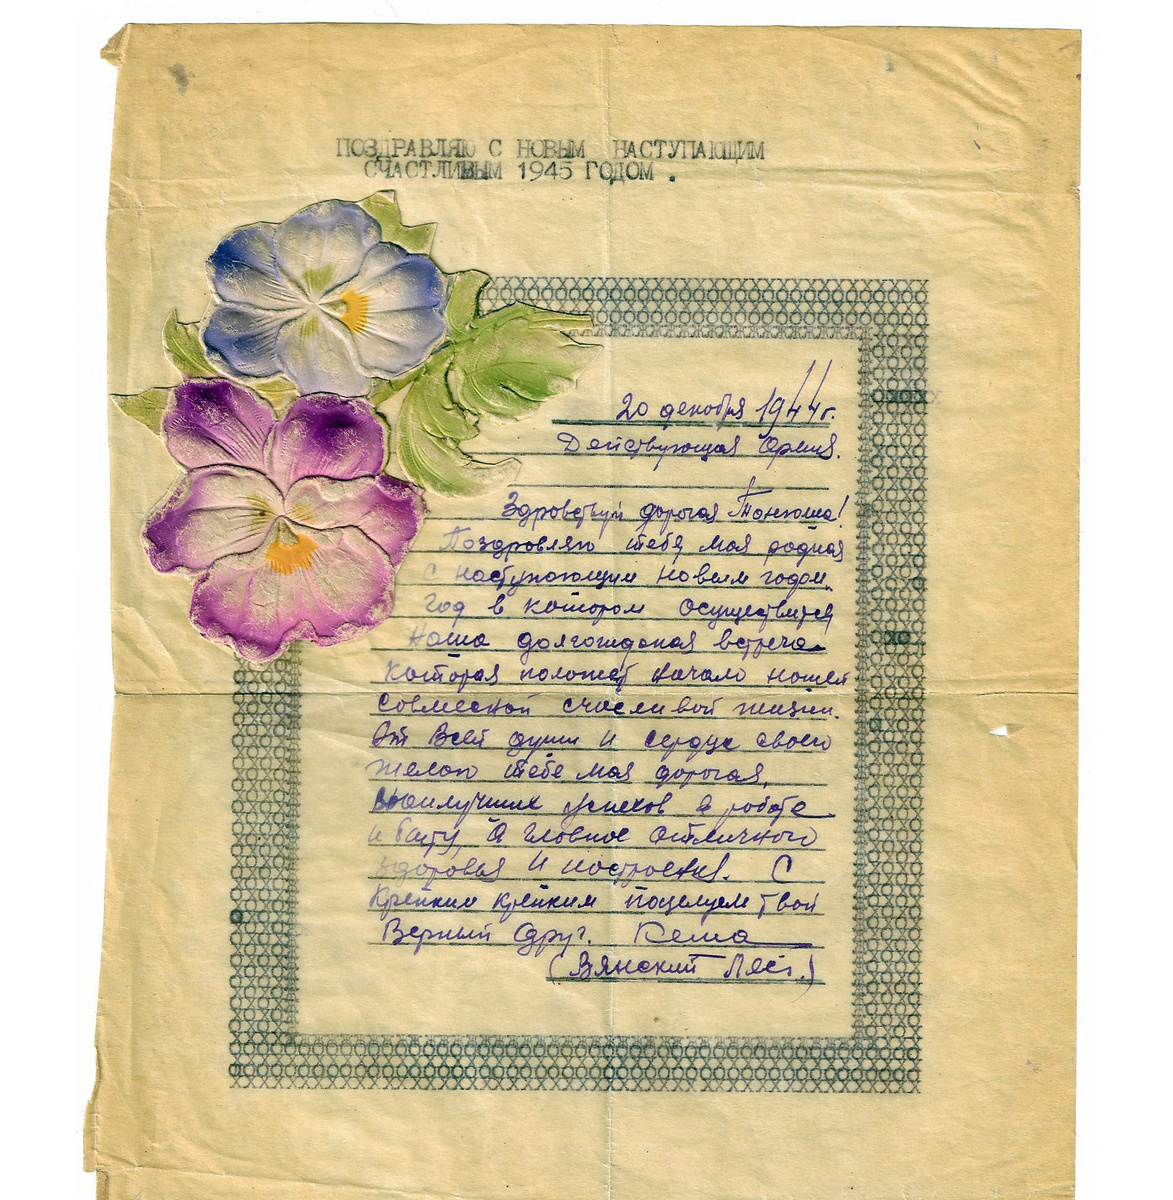 ПОЗДРАВЛЯЮ С НОВЫМ НАСТУПАЮЩИМ
СЧАСТЛИВЫМ 1945 ГОДОМ .
20 декабря 1944 г.
Действующая Армия.
Здравствуй дорогая Танюша!
Поздровляю тебя моя родная
с наступающим новым годом.
Год в котором осуществится
наша долгожданая встреча
которая положет начало нашей
совмесной счасливой жизни.
От всей души и сердце своего
желаю тебе моя дорогая,
наилучших успехов в работе
и быту, а главное отличного
здоровья и настроения. С
крепким крепким поцелуем твой
Верный друг.
(Вянский